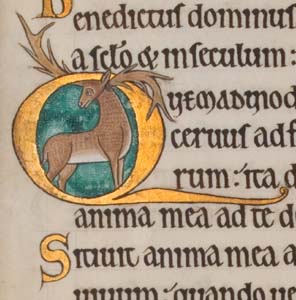 Benedictus dominus
a sclo & in seculum:
Quemadmod
ceruus ad f
rum: ita d
anima mea ad te d
Sitiuit anima mea a
uiuum: quando ue